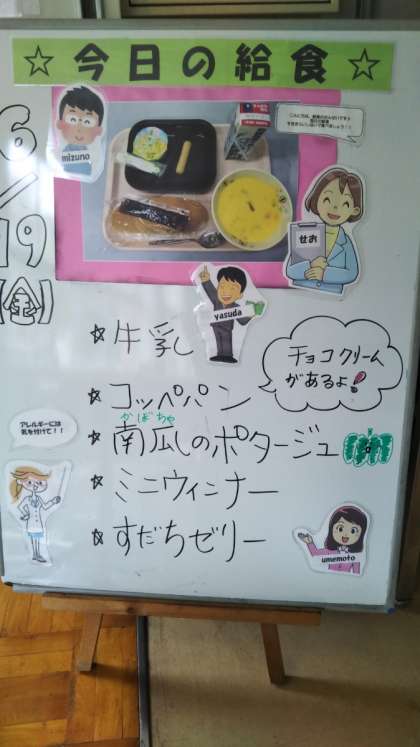 ☆今日の給食☆
mizuno
6/19
【金】
せお
yasuda
☆牛乳
☆コッペパン
チョコクリーム
があるよ!
かぼちゃ
☆南瓜のポタージュ
アレルギーには
気を付けて！！
☆ミニウィンナー
☆すだちゼリー
umemoto